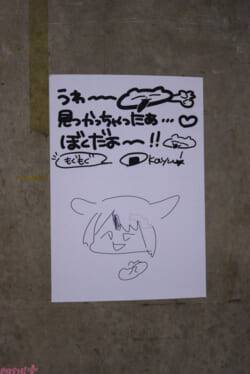 うわ〜〜
見つかっちゃったぁ…♡
ぼくだよ〜!!
もぐもぐ Kaiyu